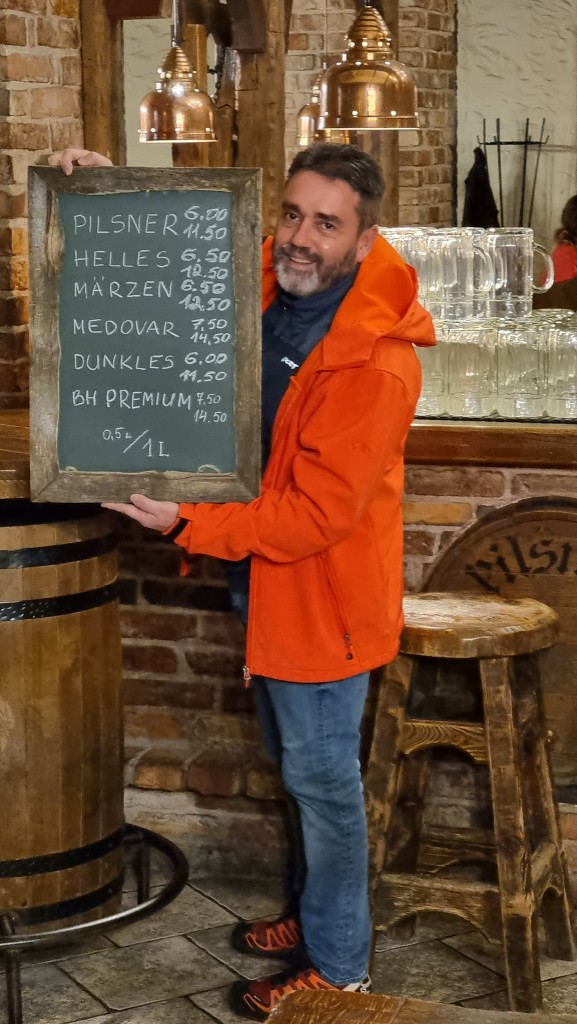 PILSNER 6.00
11.50
HELLES 6.50
12.50
MÄRZEN 6.50
12.50
MEDOVAR 7.50
14.50
DUNKLES 6.00
11.50
BH PREMIUM 7.50
14.50
0,5L/1L